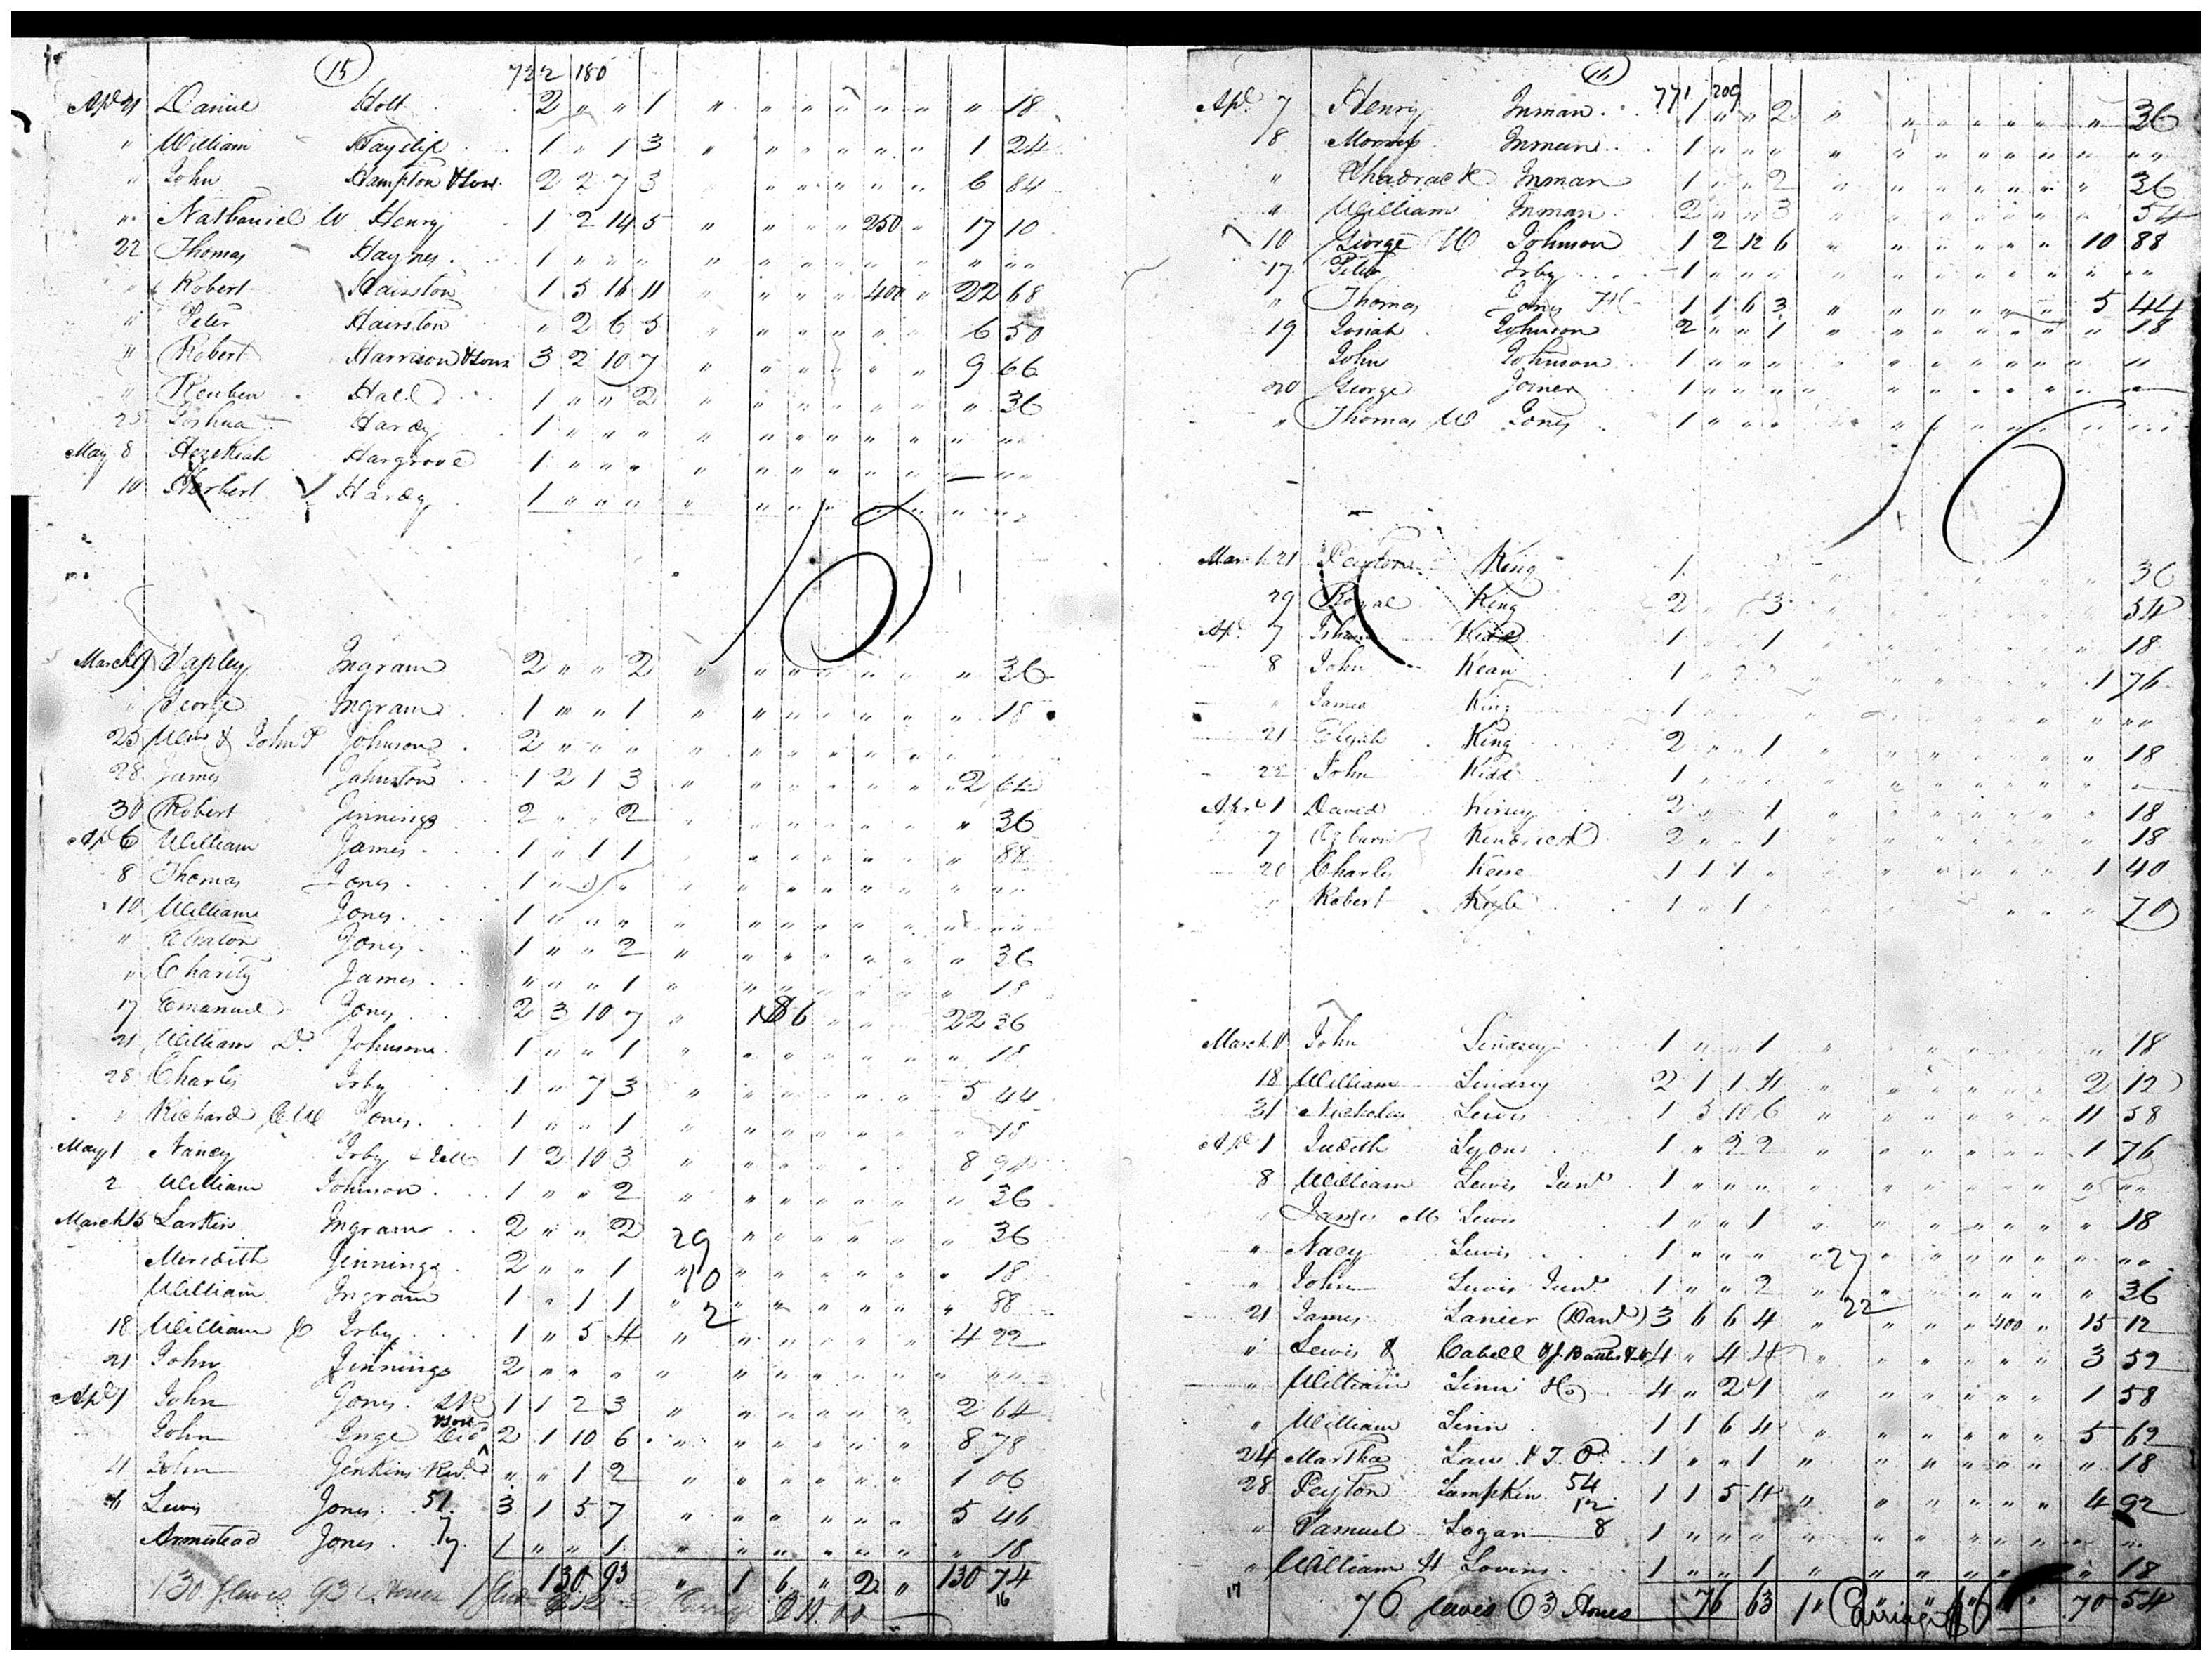 15 722 180
Apl 21 Daniel Holt 2 " " 1 " " " " " " " " 18
" William Hayslip 1 " 1 3 " " " " " " " 1 24
" John Hampton & Son 2 2 7 3 " " " " " " 6 84
" Nathaniel W Henry 1 2 14 5 " " " " 250 " 17 10
22 Thomas Haynes 1 " " " " " " " " " " " "
" Robert Hairston 1 5 16 11 " " " " 400 " 22 68
" Peter Hairston " 2 6 5 " " " " " " 6 50
" Robert Harrison & Sons 3 2 10 7 " " " " " " 9 66
" Reuben Hall 1 " " 2 " " " " " " " 36
25 Joshua Hardy 1 " " " " " " " " " " " "
May 8 Hezekiah Hargrove 1 " " " " " " " " " — " "
10 Herbert Hardy 1 " " " " " " " " " " " "
15
March 19 Vapley Ingram 2 " " 2 " " " " " " " 36
" George Ingram 1 " " 1 " " " " " " " 18
25 Wm & John P Johnson 2 " " " " " " " " " " "
28 James Johnston 1 2 1 3 " " " " " " 2 64
30 Robert Jennings 2 " " 2 " " " " " " " 36
Apl 6 William James 1 " 1 1 " " " " " " " 88
8 Thomas Jones 1 " " " " " " " " " " "
10 William Jones 1 " " " " " " " " " " "
" Jones 1 " " 2 " " " " " " " 36
" Charity James " " " 1 " " " " " " " 18
17 Emanuel Jones 2 3 10 7 " 1 6 " " " 22 36
21 William D. Johnson 1 " " 1 " " " " " " " 18
28 Charles Irby 1 " 7 3 " " " " " " 5 44
" Richard Jones 1 " " 1 " " " " " " " 18
May 1 Nancy Irby 1 2 10 3 " " " " " " 8 94
2 William Johnson 1 " " 2 " " " " " " " 36
March 15 Larkin Ingram 2 " " 2 29 " " " " " " 36
Meredith Jennings 2 " " 1 " 10 " " " " " " 18
William Ingram 1 " 1 1 " 2 " " " " " " 88
18 William C Irby 1 " 5 4 " " " " " " 4 22
21 John Jennings 2 " " " " " " " " " " " "
Apl 1 John Jones 1 1 2 3 " " " " " " 2 64
John Inge 2 1 10 6 " " " " " " 8 78
4 John Jenkins " " 1 2 " " " " " " 1 06
6 Lewis Jones 51 3 1 5 7 " " " " " " 5 46
Armistead Jones 7 1 " " 1 " " " " " " " 18
130 93 " 1 6 " 2 " 130 74
130 slaves 93 Horses 16
16 771 209
Apl 7 Henry Inman 1 " " 2 " " " " " " " 36
8 Inman 1 " " " " " " " " " " " "
" Shadrack Inman 1 " " 2 " " " " " " " 36
" William Inman 2 " " 3 " " " " " " " 54
10 George W Johnson 1 2 12 6 " " " " " " 10 88
17 Peter Irby 1 " " " " " " " " " " " "
" Thomas Jones 1 1 6 3 " " " " " " 5 44
19 Josiah Johnson 2 " " 1 " " " " " " " 18
John Johnson 1 " " " " " " " " " " "
20 George Joiner 1 " " " " " " " " " " —
" Thomas W Jones 1 " " " " " " " " " " "
16
March 21 Peyton King 1 36
29 Royal King 2 " 3 54
Apl 7 Isham Kidd 1 " " 1 18
8 John Kean 1 " 1 76
" James King 1 " " "
21 Elijah King 2 " " 1 " " " " " " " 18
22 John Kidd 1 " " " " " " " "
Apl 1 David 2 " " 1 " " " " " " " 18
7 Kendrick 2 " " 1 " " " " " " " 18
20 Charles Keese 1 1 1 " " " " " " 1 40
" Robert Kyle 1 " 1 " " " " 70
March 11 John Lindsey 1 " " 1 " " " " " " " 18
18 William Lindsey 2 1 1 4 " " " " " " 2 12
31 Nicholas Lewis 1 5 10 6 " " " " " " 11 58
Apl 1 Judith Lyon 1 " 2 2 " " " " " " 1 76
8 William Lewis Junr 1 " " " " " " " " " " " "
" James M Lewis 1 " " 1 " " " " " " " 18
" Nacy Lewis 1 " " " " 27 " " " " " " "
" John Lewis Junr 1 " " 2 " " " " " " " 36
21 James Lanier (Danl) 3 6 6 4 " 22 " " " 400 " 15 12
" Lewis & Cabell 4 " 4 4 " " " " " " 3 52
" William Linn 4 " 2 1 " " " " " " 1 58
" William Linn 1 1 6 4 " " " " " " 5 62
24 Martha Law 1 " " 1 " " " " " " " 18
28 Peyton Lampkin 54 1 1 5 4 " " " " " " 4 92
12
" Samuel Logan 8 1 " " " " " " " " " " "
" William H Lovins 1 " " 1 " " " " " " " 18
17 76 slaves 63 Horses 76 63 1 " Carriage 6 70 54